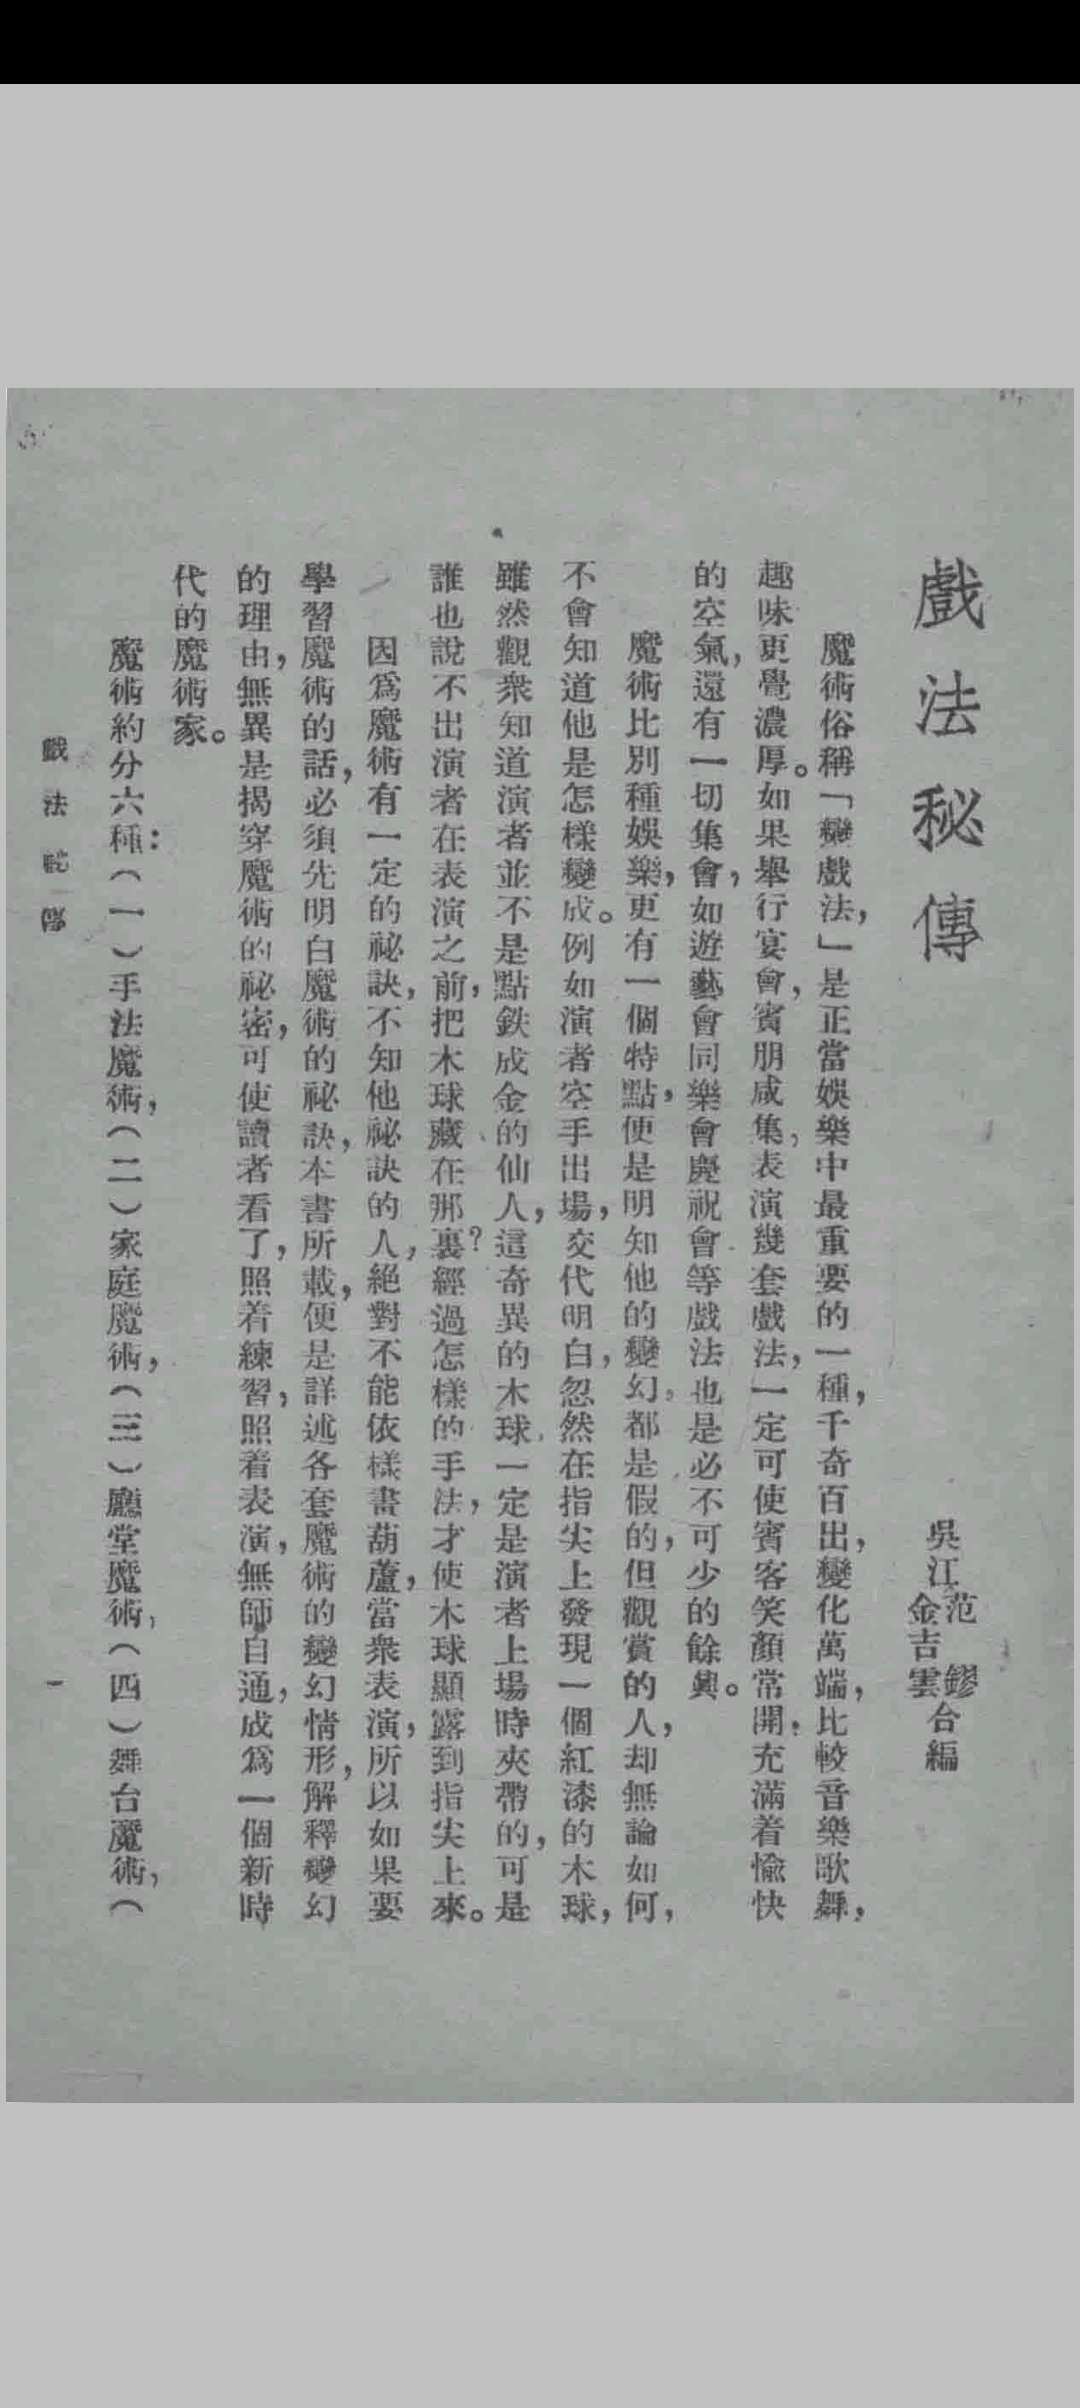 戲法秘傳
吳江 范鏐 金吉雲 合編
魔術俗稱「變戲法」是正當娛樂中最重要的一種，千奇百出，變化萬端，比較音樂歌舞，
趣味更覺濃厚。如果舉行宴會，賓朋咸集，表演幾套戲法，一定可使賓客笑顏常開，充滿着愉快
的空氣，還有一切集會，如遊藝會同樂會慶祝會等戲法也是必不可少的餘興。
魔術比別種娛樂，更有一個特點，便是明知他的變幻，都是假的，但觀賞的人，却無論如何，
不會知道他是怎樣變成。例如演者空手出場，交代明白，忽然在指尖上發現一個紅漆的木球，
雖然觀衆知道演者並不是點鉄成金的仙人，這奇異的木球，一定是演者上場時夾帶的，可是
誰也說不出演者在表演之前，把木球藏在那裏？經過怎樣的手法，才使木球顯露到指尖上來。
因爲魔術有一定的祕訣，不知他祕訣的人，絕對不能依樣畫葫蘆，當衆表演，所以如果要
學習魔術的話，必須先明白魔術的祕訣，本書所載，便是詳述各套魔術的變幻情形，解釋變幻
的理由，無異是揭穿魔術的祕密，可使讀者看了，照着練習，照着表演，無師自通，成爲一個新時
代的魔術家。
魔術約分六種：（一）手法魔術，（二）家庭魔術，（三）廳堂魔術，（四）舞台魔術，（
戲法秘傳
一